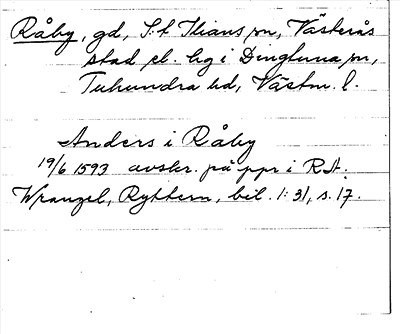 Råby, gd, S:t Ilians sn, Västerås
stad el. by i Dingtuna sn,
Tuhundra hd, Västm. l.
Anders i Råby
19/6 1593 avskr. på ppr i RA:
Wrangel, Ryttern, bil. 1:31, s. 17.